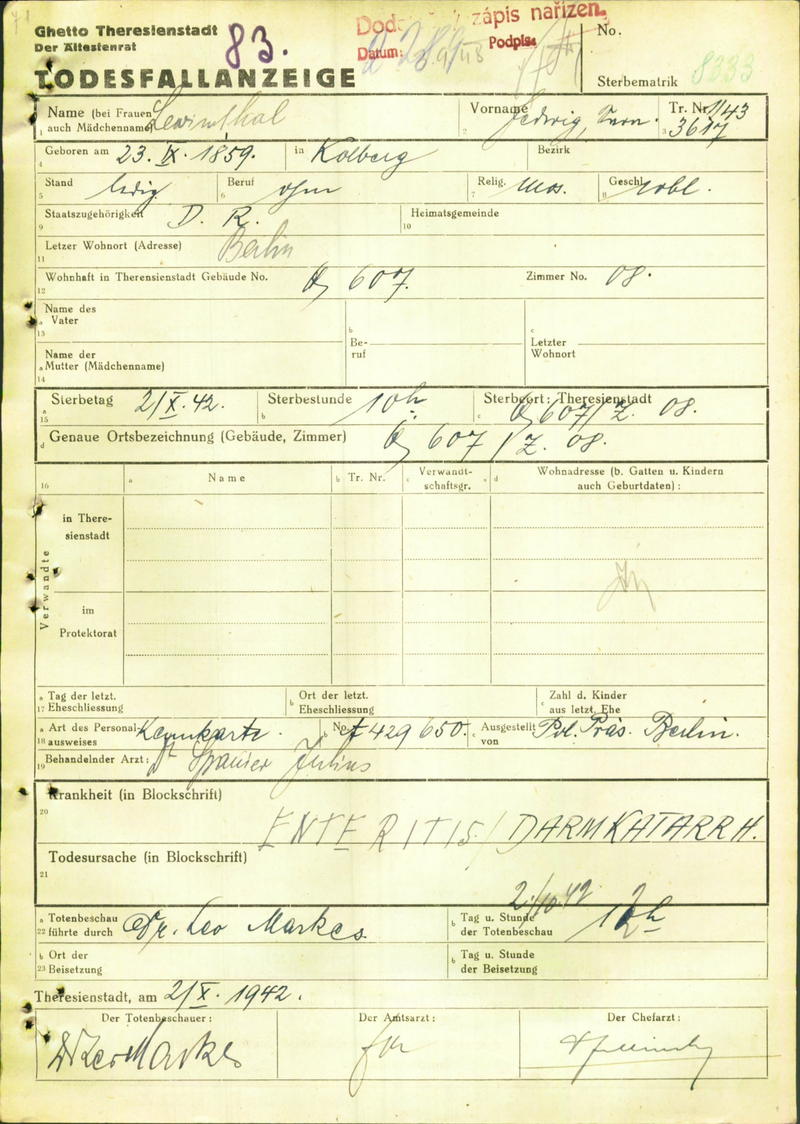 Ghetto Theresienstadt
Der Ältestenrat
83.
zápis nařízen.
Datum:
Podpis:
No.
TODESFALLANZEIGE
Sterbematrik 8333
Name (bei Frauen auch Mädchenname) Lewinthal Vorname Hedwig, Tr. Nr. I/43
1 2 3 3617
Geboren am 23. IX. 1859. in Kolberg Bezirk
4
Stand ledig Beruf ohne Relig. mos. Geschl. weibl.
5 6 7 8
Staatszugehörigkeit D. R. Heimatsgemeinde
9 10
Letzer Wohnort (Adresse) Berlin
11
Wohnhaft in Theresienstadt Gebäude No. Q 607. Zimmer No. 08.
12
Name des
a Vater
13
b Beruf
c Letzter Wohnort
Name der
a Mutter (Mädchenname)
14
a Sterbetag 2/X. 42. b Sterbestunde 10 h c Sterbeort: Theresienstadt Q 607/Z. 08.
15
d Genaue Ortsbezeichnung (Gebäude, Zimmer) Q 607 / Z. 08.
16 a Name b Tr. Nr. c Verwandtschaftsgr. d Wohnadresse (b. Gatten u. Kindern auch Geburtdaten):
Verwandte
in Theresienstadt
im Protektorat
a Tag der letzt. b Ort der letzt. c Zahl d. Kinder
17 Eheschliessung Eheschliessung aus letzt. Ehe
a Art des Personalausweises Kennkarte. b No. A 429 650. c Ausgestellt von Pol. Präs. Berlin.
18
Behandelnder Arzt: Dr Spanier Julius
19
Krankheit (in Blockschrift)
20
ENTERITIS / DARMKATARRH.
Todesursache (in Blockschrift)
21
a Totenbeschau führte durch Dr. Leo Markes b Tag u. Stunde der Totenbeschau 2./10.42 12h
22
b Ort der Beisetzung b Tag u. Stunde der Beisetzung
23
Theresienstadt, am 2/X. 1942.
Der Totenbeschauer: Der Amtsarzt: Der Chefarzt:
Dr Leo Markes